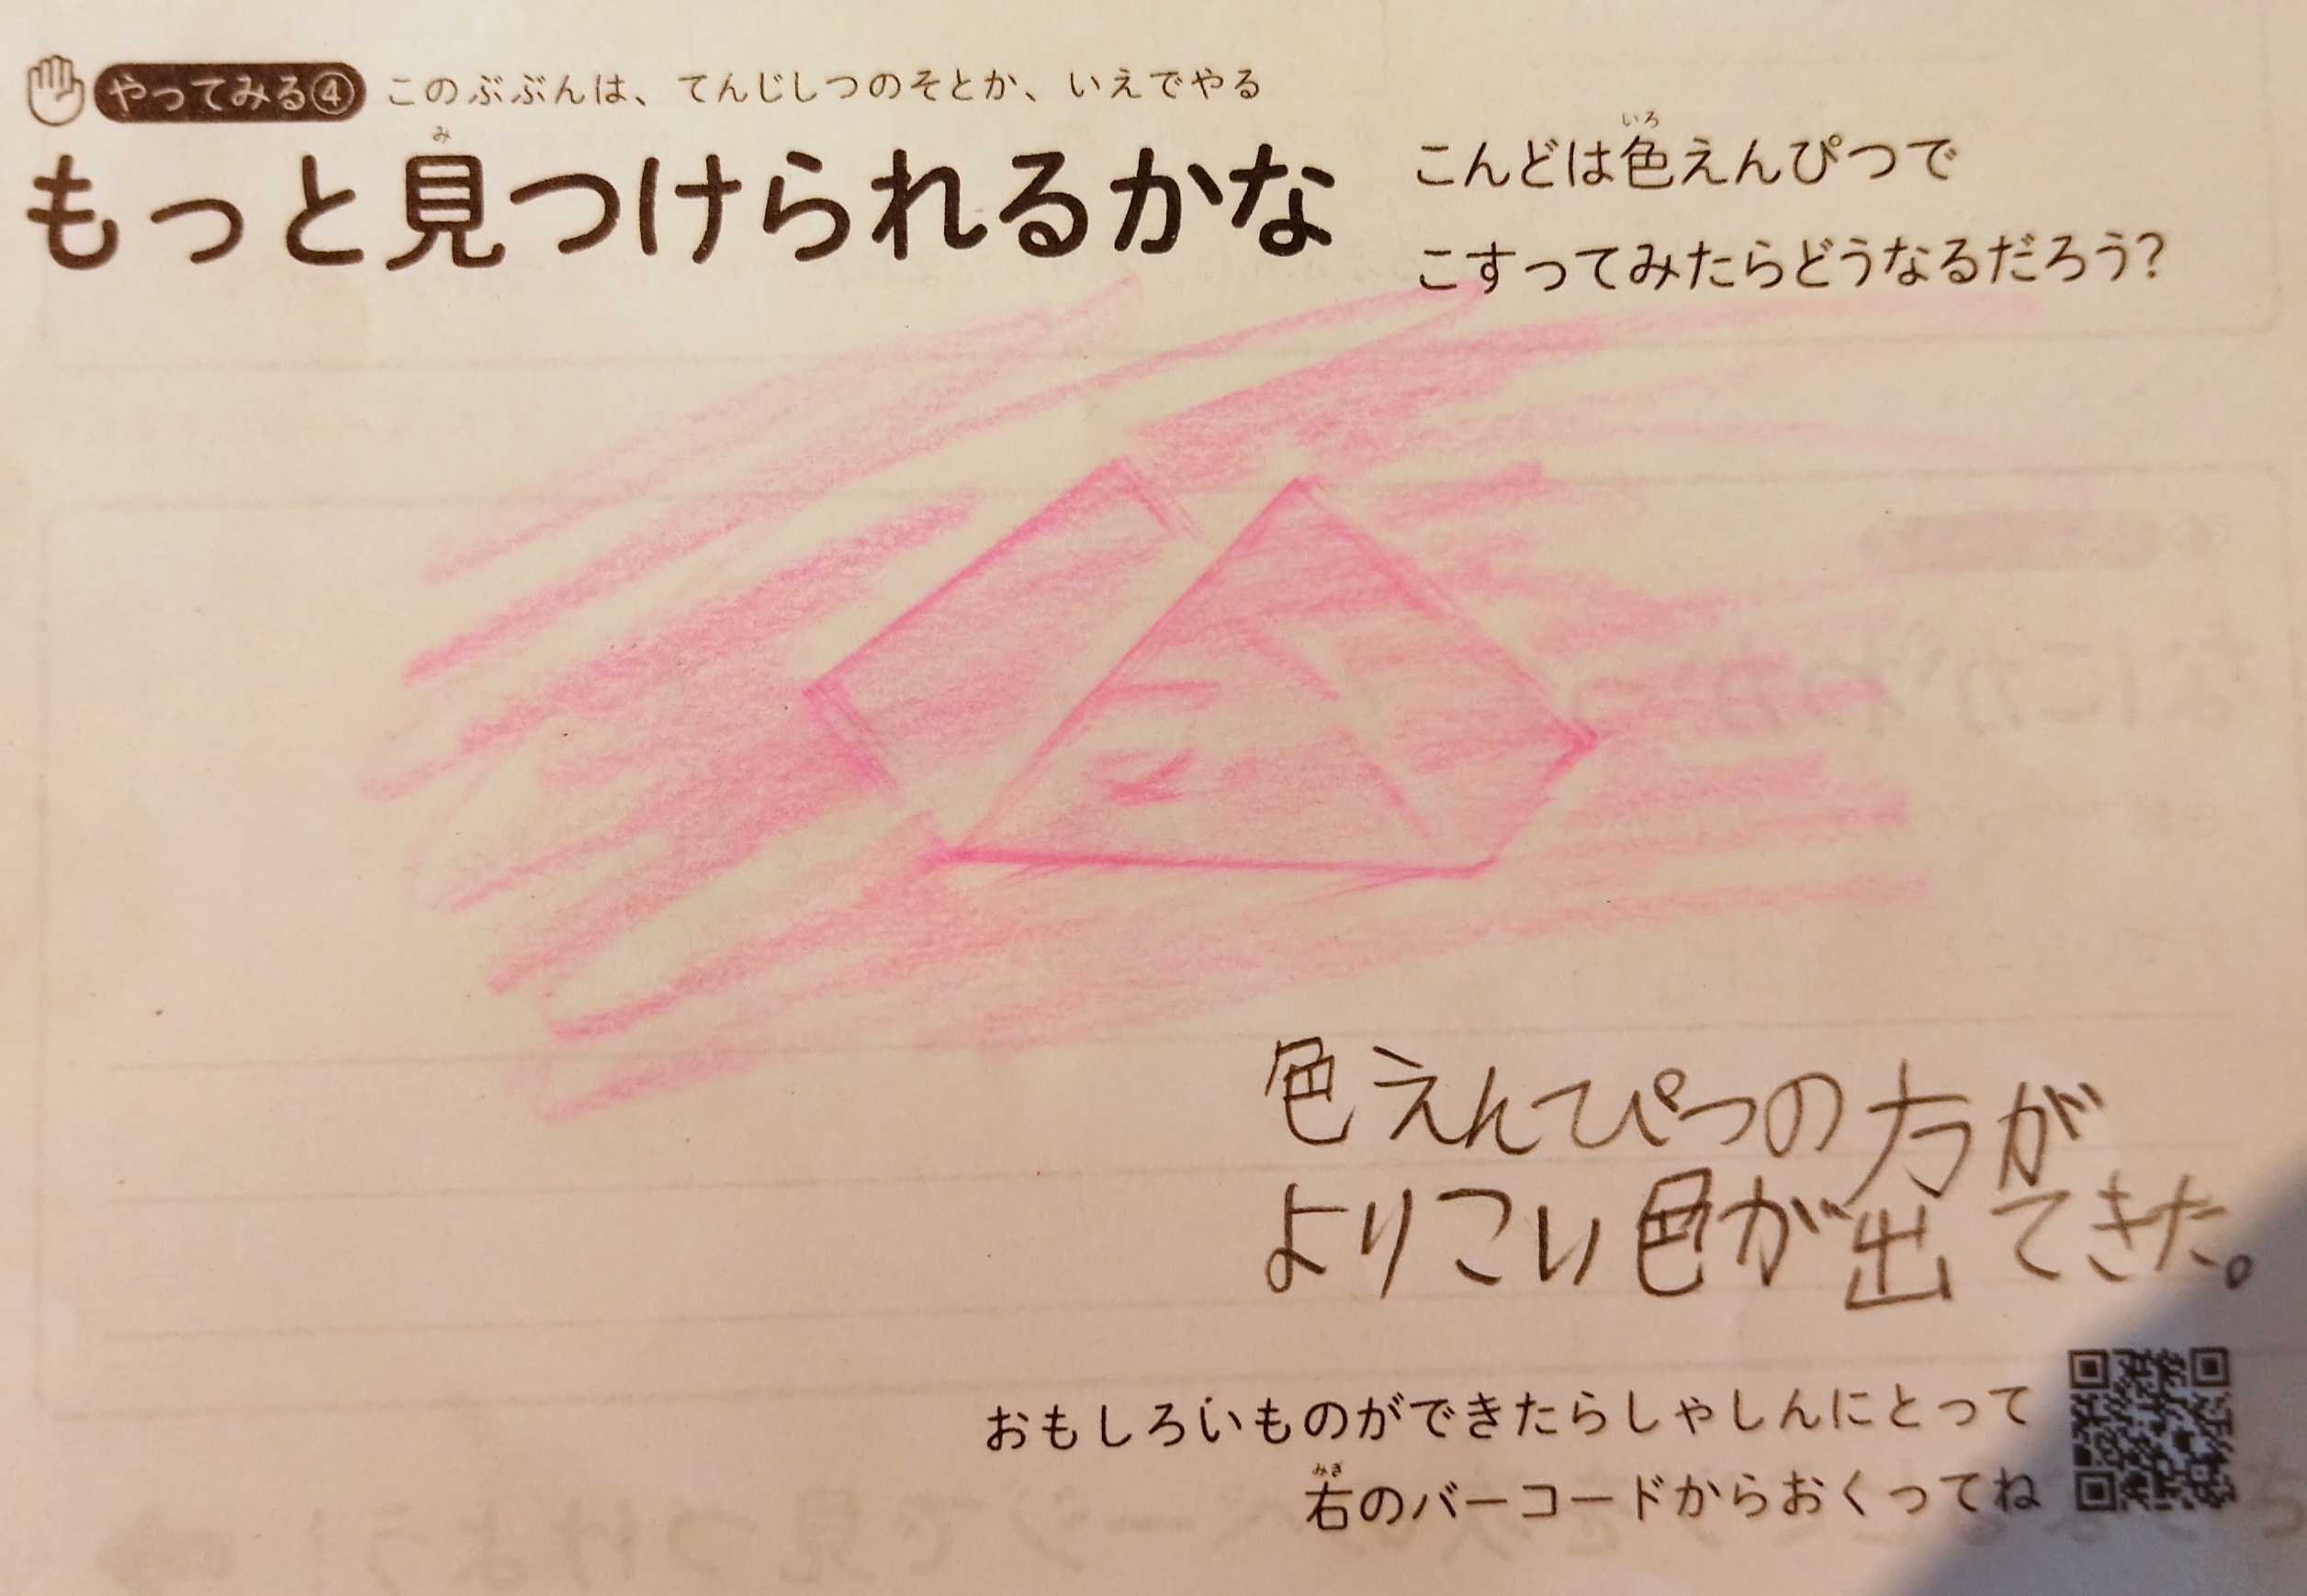 やってみる④ このぶぶんは、てんじしつのそとか、いえでやる
み
もっと見つけられるかな
いろ
こんどは色えんぴつで
こすってみたらどうなるだろう?
色えんぴつの方が
よりこい色が出てきた。
おもしろいものができたらしゃしんにとって
みぎ
右のバーコードからおくってね